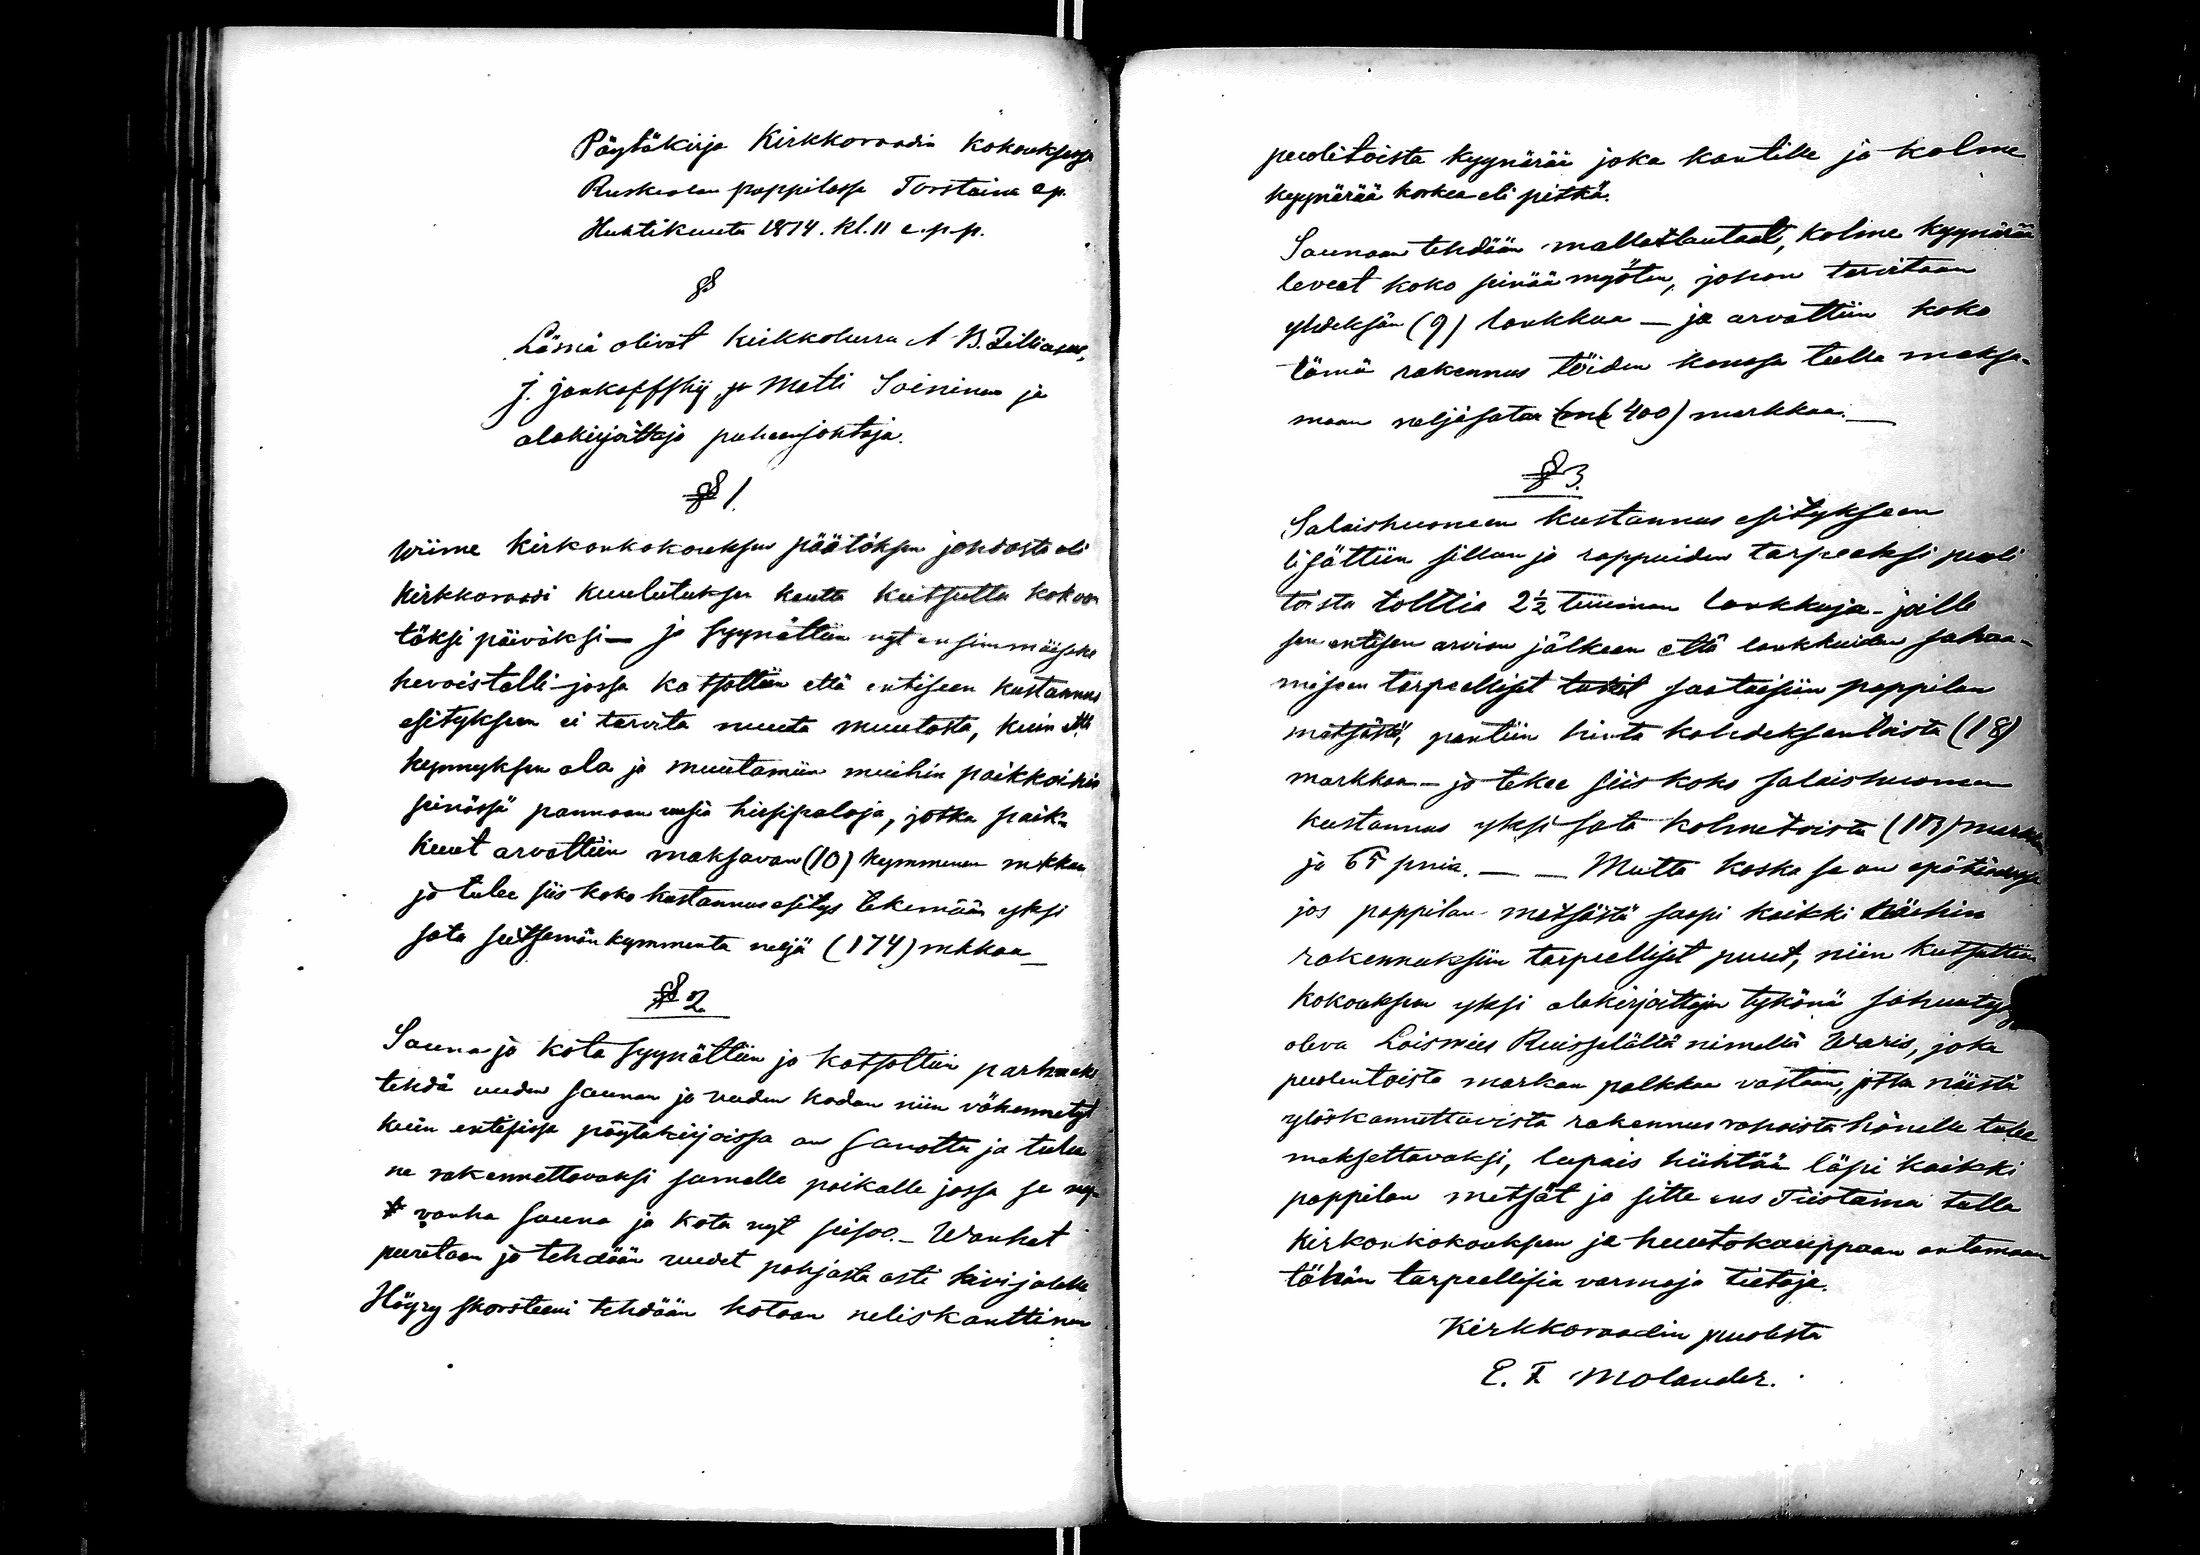 Pöytäkirja Kirkkoraadin kokouksessa
Ruskealan pappilassa Torstaina 2 p.
Huhtikuuta 1874. kl. 11 e.p.p.
§
Läsnä olivat kirkkoherra A B. Zilliacus,
J. Jankoffskij, ja Matti Soininen ja
alakirjoittaja puheenjohtaja.
§ 1.
Wiime kirkonkokouksen päätöksen johdosta oli
kirkkoraadi kuulutuksen kautta kutsuttu kokoon
täksi päiväksi – ja syynättiin nyt ensimmäiseksi
hevoistalli – jossa katsottiin että entiseen kustannus
esitykseen ei tarvita muuta muutosta, kuin että
kynnyksen ala ja muutamiin muihin paikkoihin
seinässä pannaan uusia hirsipaloja, jotka paik-
kuut arvattiin maksavan (10) kymmenen mkkaa
ja tulee siis koko kustannusesitys tekemään yksi
sata seitsemänkymmentä neljä (174) mkkaa –
§ 2
Sauna ja kota syynättiin ja katsottiin parhaaksi
tehdä uuden saunan ja uuden kodan niin vähennetyt
kuin entisissä pöytäkirjoissa on sanottu ja tulee
ne rakennettavaksi samalle paikalle jossa se
vanha sauna ja kota nyt seisoo. – Wanhat
puretaan ja tehdään uudet pohjasta asti kivijalalle
Höyry skorsteeni tehdään kotaan neliskanttinen
puolitoista kyynärää joka kantille ja kolme
kyynärää korkea eli pitkä.
Saunaan tehdään mallaslautaat, kolme kyynärää
leveet koko seinää myöten, johon tarvitaan
yhdeksän (9) lankkua – ja arvattiin koko
tämä rakennus töiden kanssa tulla maksa-
maan neljäsataa (400) markkaa. –
§ 3.
Salaishuoneen kustannus esitykseen
lisättiin sillan ja rappuiden tarpeeksi puoli
toista tolttia 2½ tuuman lankkuja – joille
sen entisen arvion jälkeen että lankkuiden sahaa-
miseen tarpeelliset tukit saataisiin pappilan
metsästä, pantiin hinta kahdeksantoista (18)
markkaa – ja tekee siis koko salaishuoneen
kustannus yksi sata kolmetoista (113) markkaa
ja 65 pniä. – – Mutta koska se on epätietoista
jos pappilan metsästä saapi kaikki näihin
rakennuksiin tarpeelliset puut, niin kutsuttiin
kokouksen yksi alakirjoittajan tykönä
oleva Loismies Ruisselältä nimeltä Waris, joka
puolentoista markan palkkaa vastaan, jotka näistä
ylöskannettavista rakennus rahoista hänelle tulee
maksettavaksi, lupais hiihtää läpi kaikki
pappilan metsät ja sitte ens Tiistaina tulla
kirkonkokouksen ja huutokauppaan antamaan
tähän tarpeellisia varmoja tietoja.
Kirkkoraadin puolesta
E. F. Molander.